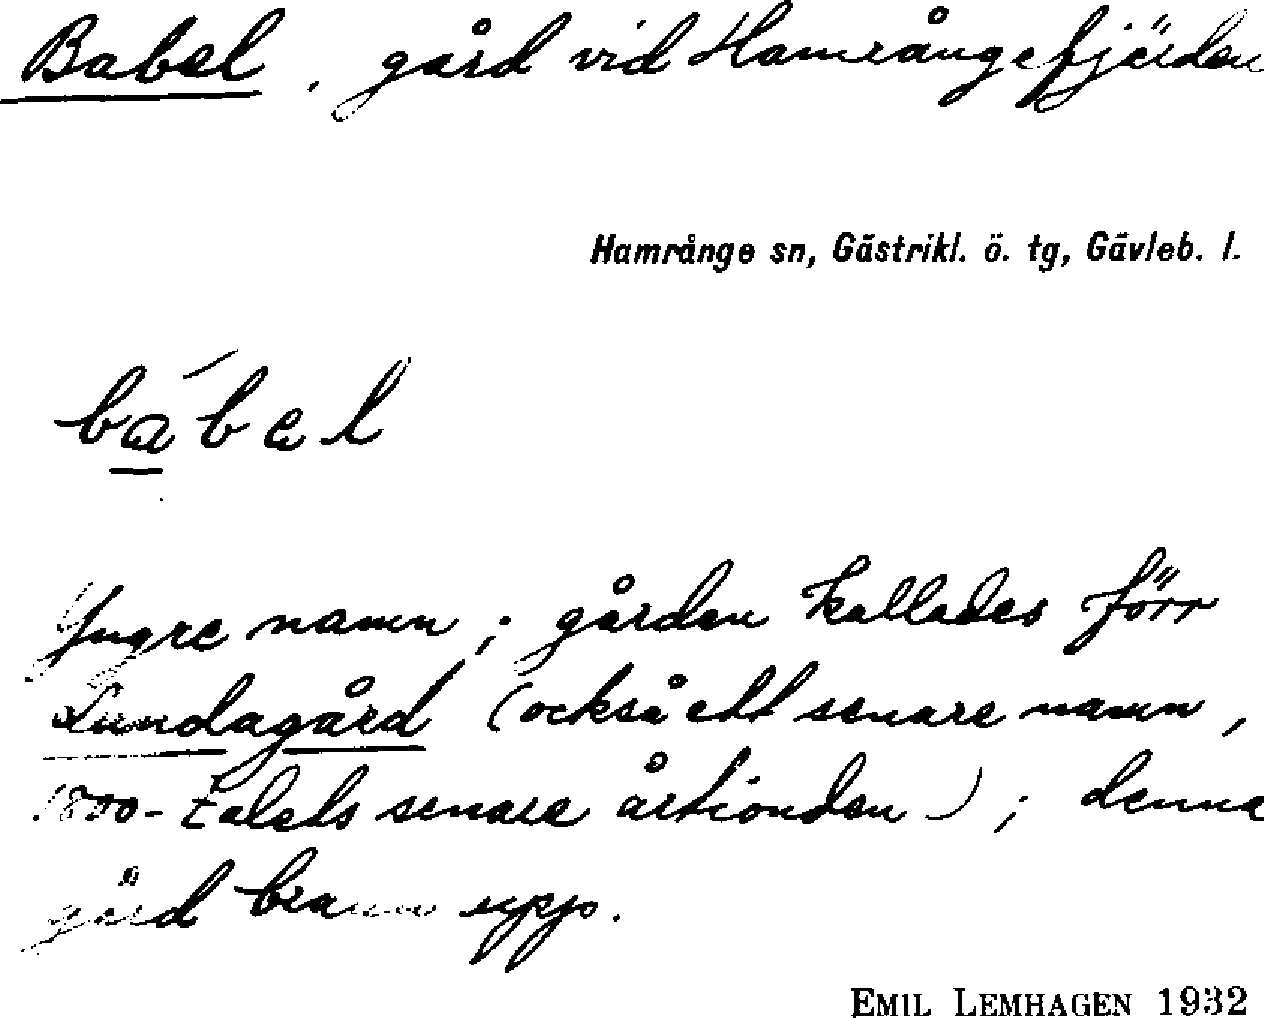 Babel, gård vid Hamrångefjärden
Hamrånge sn, Gästrikl. ö. tg, Gävleb. l.
bábel
Yngre namn; gården kallades förr
Lundagård (också ett senare namn,
1800-talets senare årtionden); denna
gård brann upp.
EMIL LEMHAGEN 1932